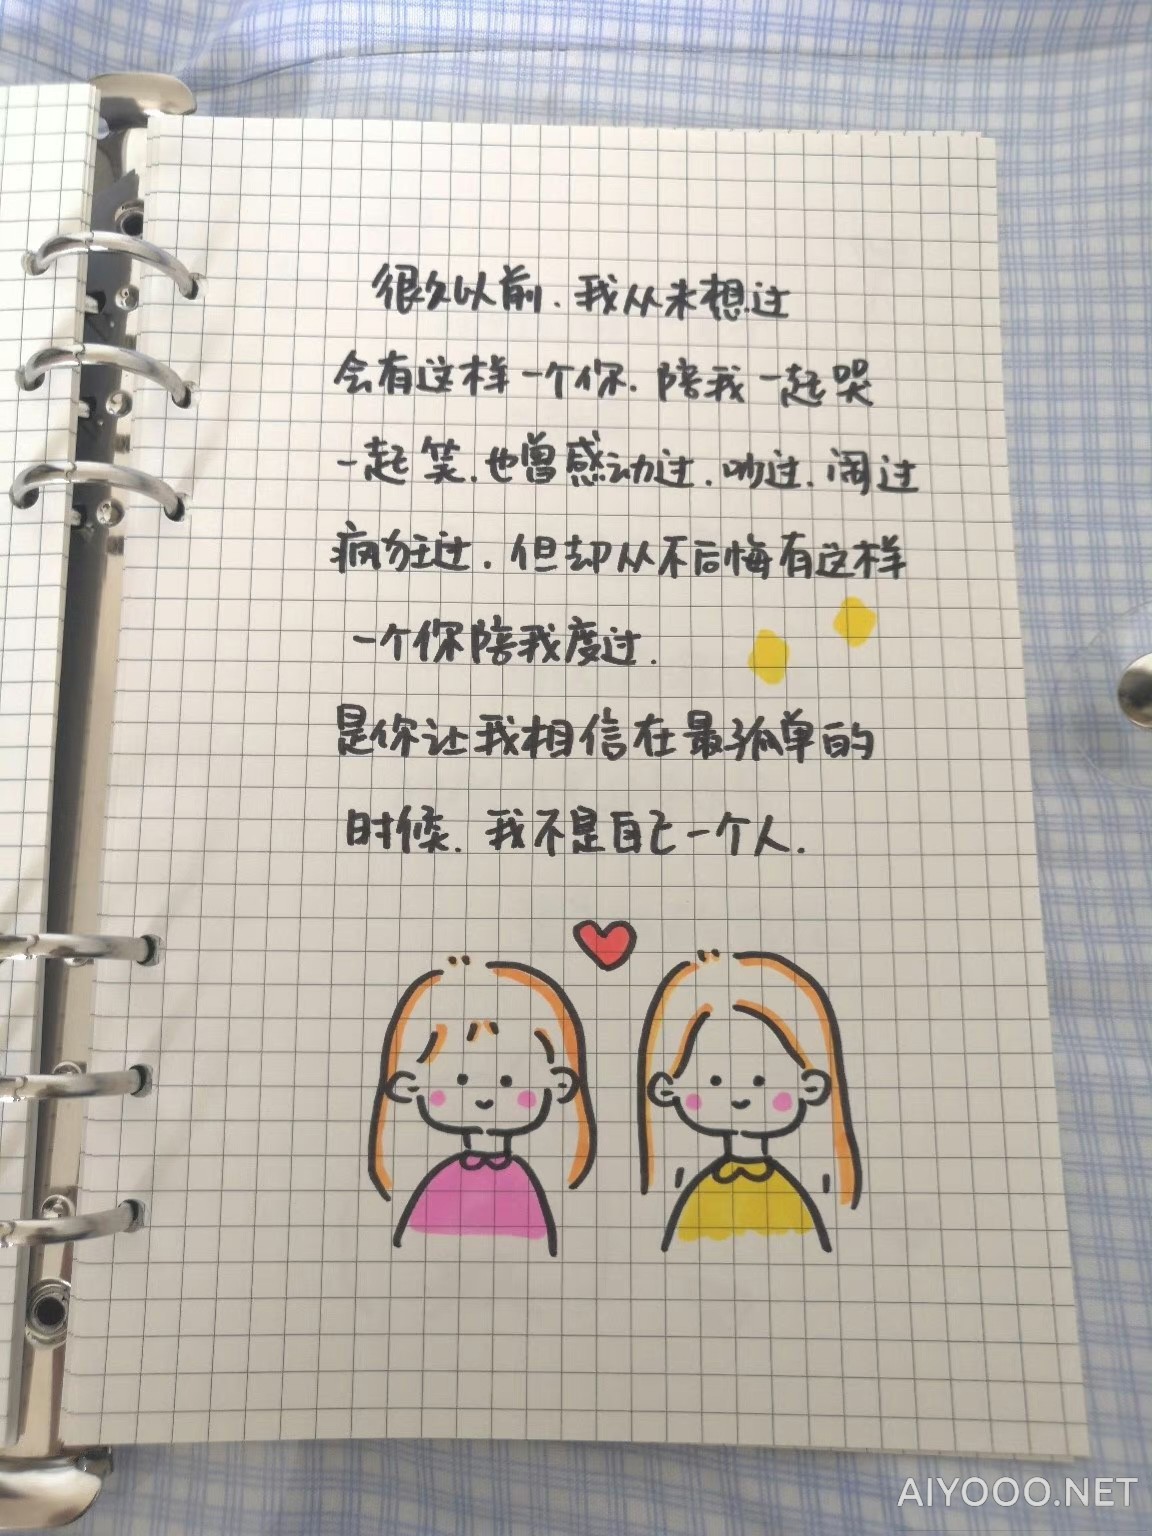 很久以前.我从未想过
会有这样一个你.陪我一起哭
一起笑.也曾感动过.吵过.闹过
疯狂过.但却从不后悔有这样
一个你陪我度过.
是你让我相信在最孤单的
时候.我不是自己一个人.
AIYOOO.NET